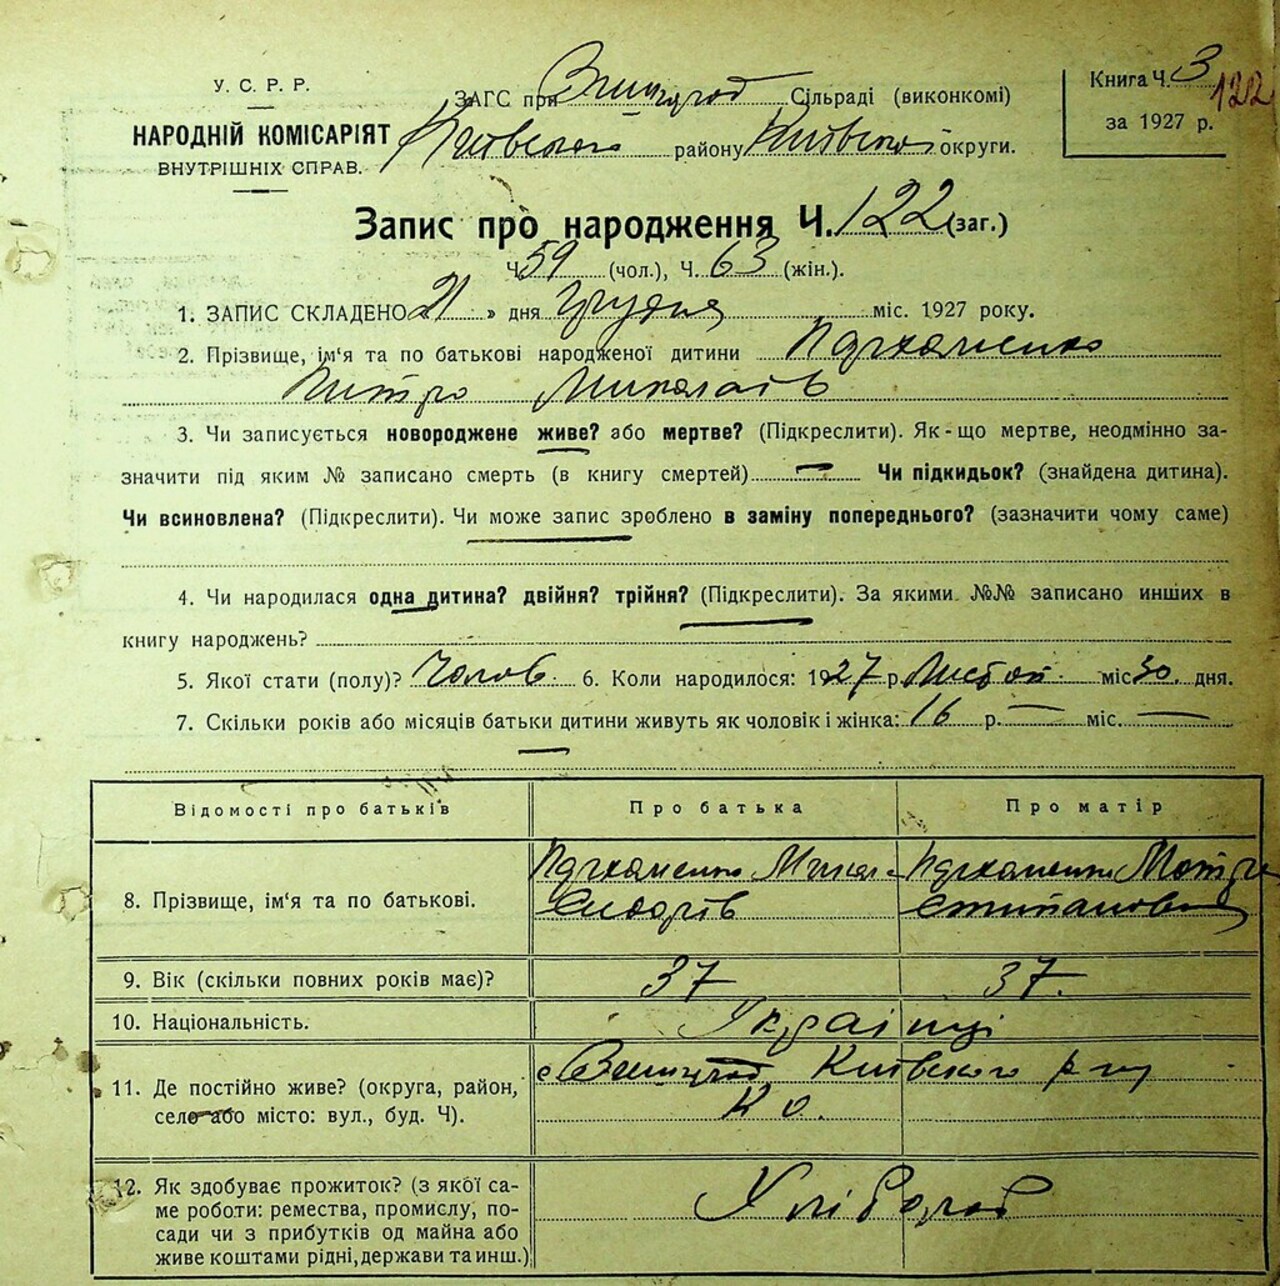 У. С. Р. Р.
НАРОДНІЙ КОМІСАРІЯТ
ВНУТРІШНІХ СПРАВ.
ЗАГС при Вишгород Сільраді (виконкомі)
Київського району Київської округи.
Книга Ч. 3 122
за 1927 р.
Запис про народження Ч. 122 (заг.)
Ч. 59 (чол.), Ч. 63 (жін.).
1. ЗАПИС СКЛАДЕНО «21» дня Грудня міс. 1927 року.
2. Прізвище, ім'я та по батькові народженої дитини Пархоменко
Петро Миколаїв
3. Чи записується новороджене живе? або мертве? (Підкреслити). Як-що мертве, неодмінно за-
значити під яким № записано смерть (в книгу смертей) — Чи підкидьок? (знайдена дитина).
Чи всиновлена? (Підкреслити). Чи може запис зроблено в заміну попереднього? (зазначити чому саме)
4. Чи народилася одна дитина? двійня? трійня? (Підкреслити). За якими №№ записано инших в
книгу народжень?
5. Якої стати (полу)? Чолов. 6. Коли народилося: 1927 р. Листоп. міс. 30. дня.
7. Скільки років або місяців батьки дитини живуть як чоловік і жінка: 16 р. — міс. —
Відомості про батьків Про батька Про матір
8. Прізвище, ім'я та по батькові. Пархоменко Микола Сидорів Пархоменко Мотря Степановна
9. Вік (скільки повних років має)? 37 37.
10. Національність. Українці
11. Де постійно живе? (округа, район, с. Вишгород Київського р-ну
село або місто: вул., буд. Ч). К о.
12. Як здобуває прожиток? (з якої са-
ме роботи: ремества, промислу, по- Хлібороб
сади чи з прибутків од майна або
живе коштами рідні, держави та инш.)